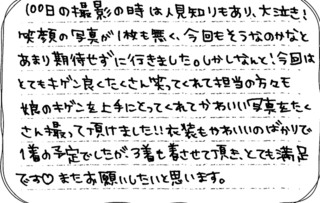 100日の撮影の時は人見知りもあり、大泣き!
笑顔の写真が1枚も無く、今回もそうなのかなと
あまり期待せずに行きました。しかしなんと!今回は
とてもキゲン良くたくさん笑ってくれて担当の方々も
娘のキゲンを上手にとってくれてかわいい写真をたく
さん撮って頂けました!!衣装もかわいいのばかりで
1着の予定でしたが3着も着させて頂き、とても満足
です♡またお願いしたいと思います。